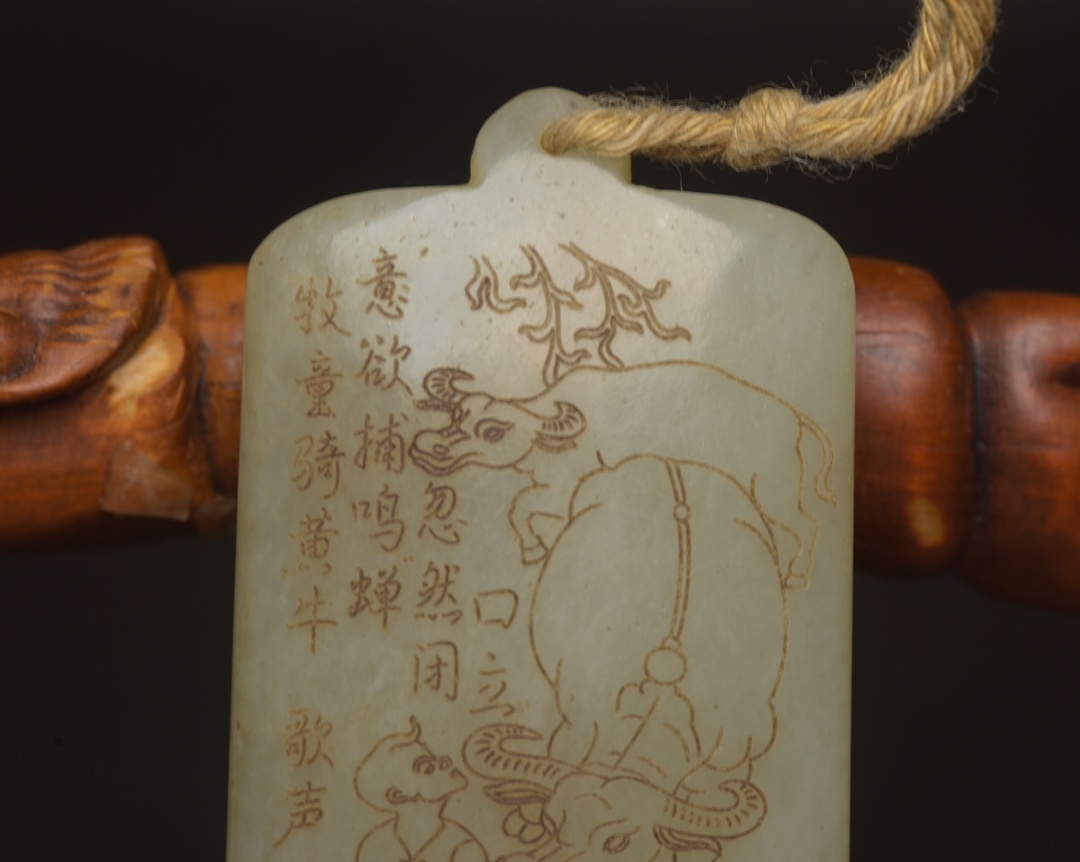 牧童骑黄牛 歌声
意欲捕鸣蝉
忽然闭
口立